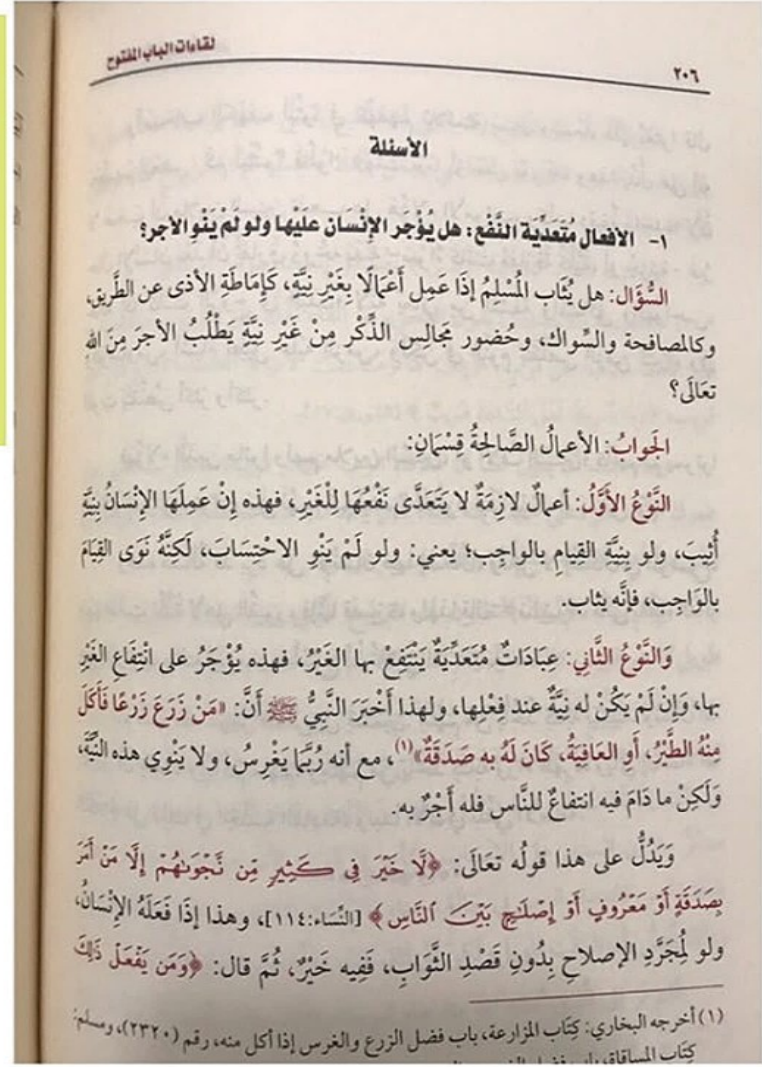 لقاءات الباب المفتوح
٢٠٦
الأسئلة
١- الأفعال مُتَعَدِّيَة النَّفْع: هل يُؤْجر الإِنْسَان عَلَيْها ولو لَمْ يَنْوِ الأجر؟
السُّؤَال: هل يُثَاب المُسْلِمُ إذَا عَمِل أَعْمَالًا بِغَيْرِ نِيَّةٍ، كَإِمَاطَةِ الأذى عن الطَّرِيق،
وكالمصافحة والسِّواك، وحُضور مَجالِس الذِّكْر مِنْ غَيْرِ نِيَّةٍ يَطْلُبُ الأجرَ مِنَ اللهِ
تعَالَى؟
الجَوابُ: الأعمالُ الصَّالِحةُ قِسْمَانِ:
النَّوْعُ الأَوَّلُ: أعمالٌ لازِمَةٌ لا يَتَعَدَّى نَفْعُهَا لِلْغَيْرِ، فهذه إِنْ عَمِلَهَا الإِنْسَانُ بِنِيَّةٍ
أُثِيبَ، ولو بِنِيَّةِ القِيامِ بالواجِب؛ يعني: ولو لَمْ يَنْوِ الاحْتسَابَ، لَكِنَّهُ نَوَى القِيَامَ
بالوَاجِب، فإنَّه يثاب.
وَالنَّوْعُ الثَّانِي: عِبَادَاتٌ مُتَعَدِّيَةٌ يَنْتَفِعُ بها الغَيْرُ، فهذه يُؤْجَرُ على انْتِفَاعِ الغَيْرِ
بها، وَإِنْ لَمْ يَكُنْ له نِيَّةٌ عند فِعْلِها، ولهذا أَخْبَرَ النَّبِيُّ ﷺ أَنَّ: «مَنْ زَرَعَ زَرْعًا فَأَكَلَ
مِنْهُ الطَّيْرُ، أَوِ العَافِيَةُ، كَانَ لَهُ به صَدَقَةٌ»(١)، مع أنه رُبَّمَا يَغْرِسُ، ولا يَنْوِي هذه النِّيَّةَ،
وَلَكِنْ ما دَامَ فيه انتفاعٌ للنَّاس فله أَجْرٌ به.
وَيَدُلُّ على هذا قولُه تعَالَى: ﴿لَّا خَيْرَ فِي كَثِيرٍ مِّن نَّجْوَىٰهُمْ إِلَّا مَنْ أَمَرَ
بِصَدَقَةٍ أَوْ مَعْرُوفٍ أَوْ إِصْلَٰحٍ بَيْنَ ٱلنَّاسِ﴾ [النِّسَاء:١١٤]، وهذا إِذَا فَعَلَهُ الإِنْسَانُ،
ولو لِمُجَرَّدِ الإصلاحِ بِدُونِ قَصْدِ الثَّوَابِ، فَفِيه خَيْرٌ، ثُمَّ قال: ﴿وَمَن يَفْعَلْ ذَٰلِكَ
(١) أخرجه البخاري: كِتَاب المزارعة، باب فضل الزرع والغرس إذا أكل منه، رقم (٢٣٢٠)، ومسلم:
كِتَاب المساقاة، باب فضل